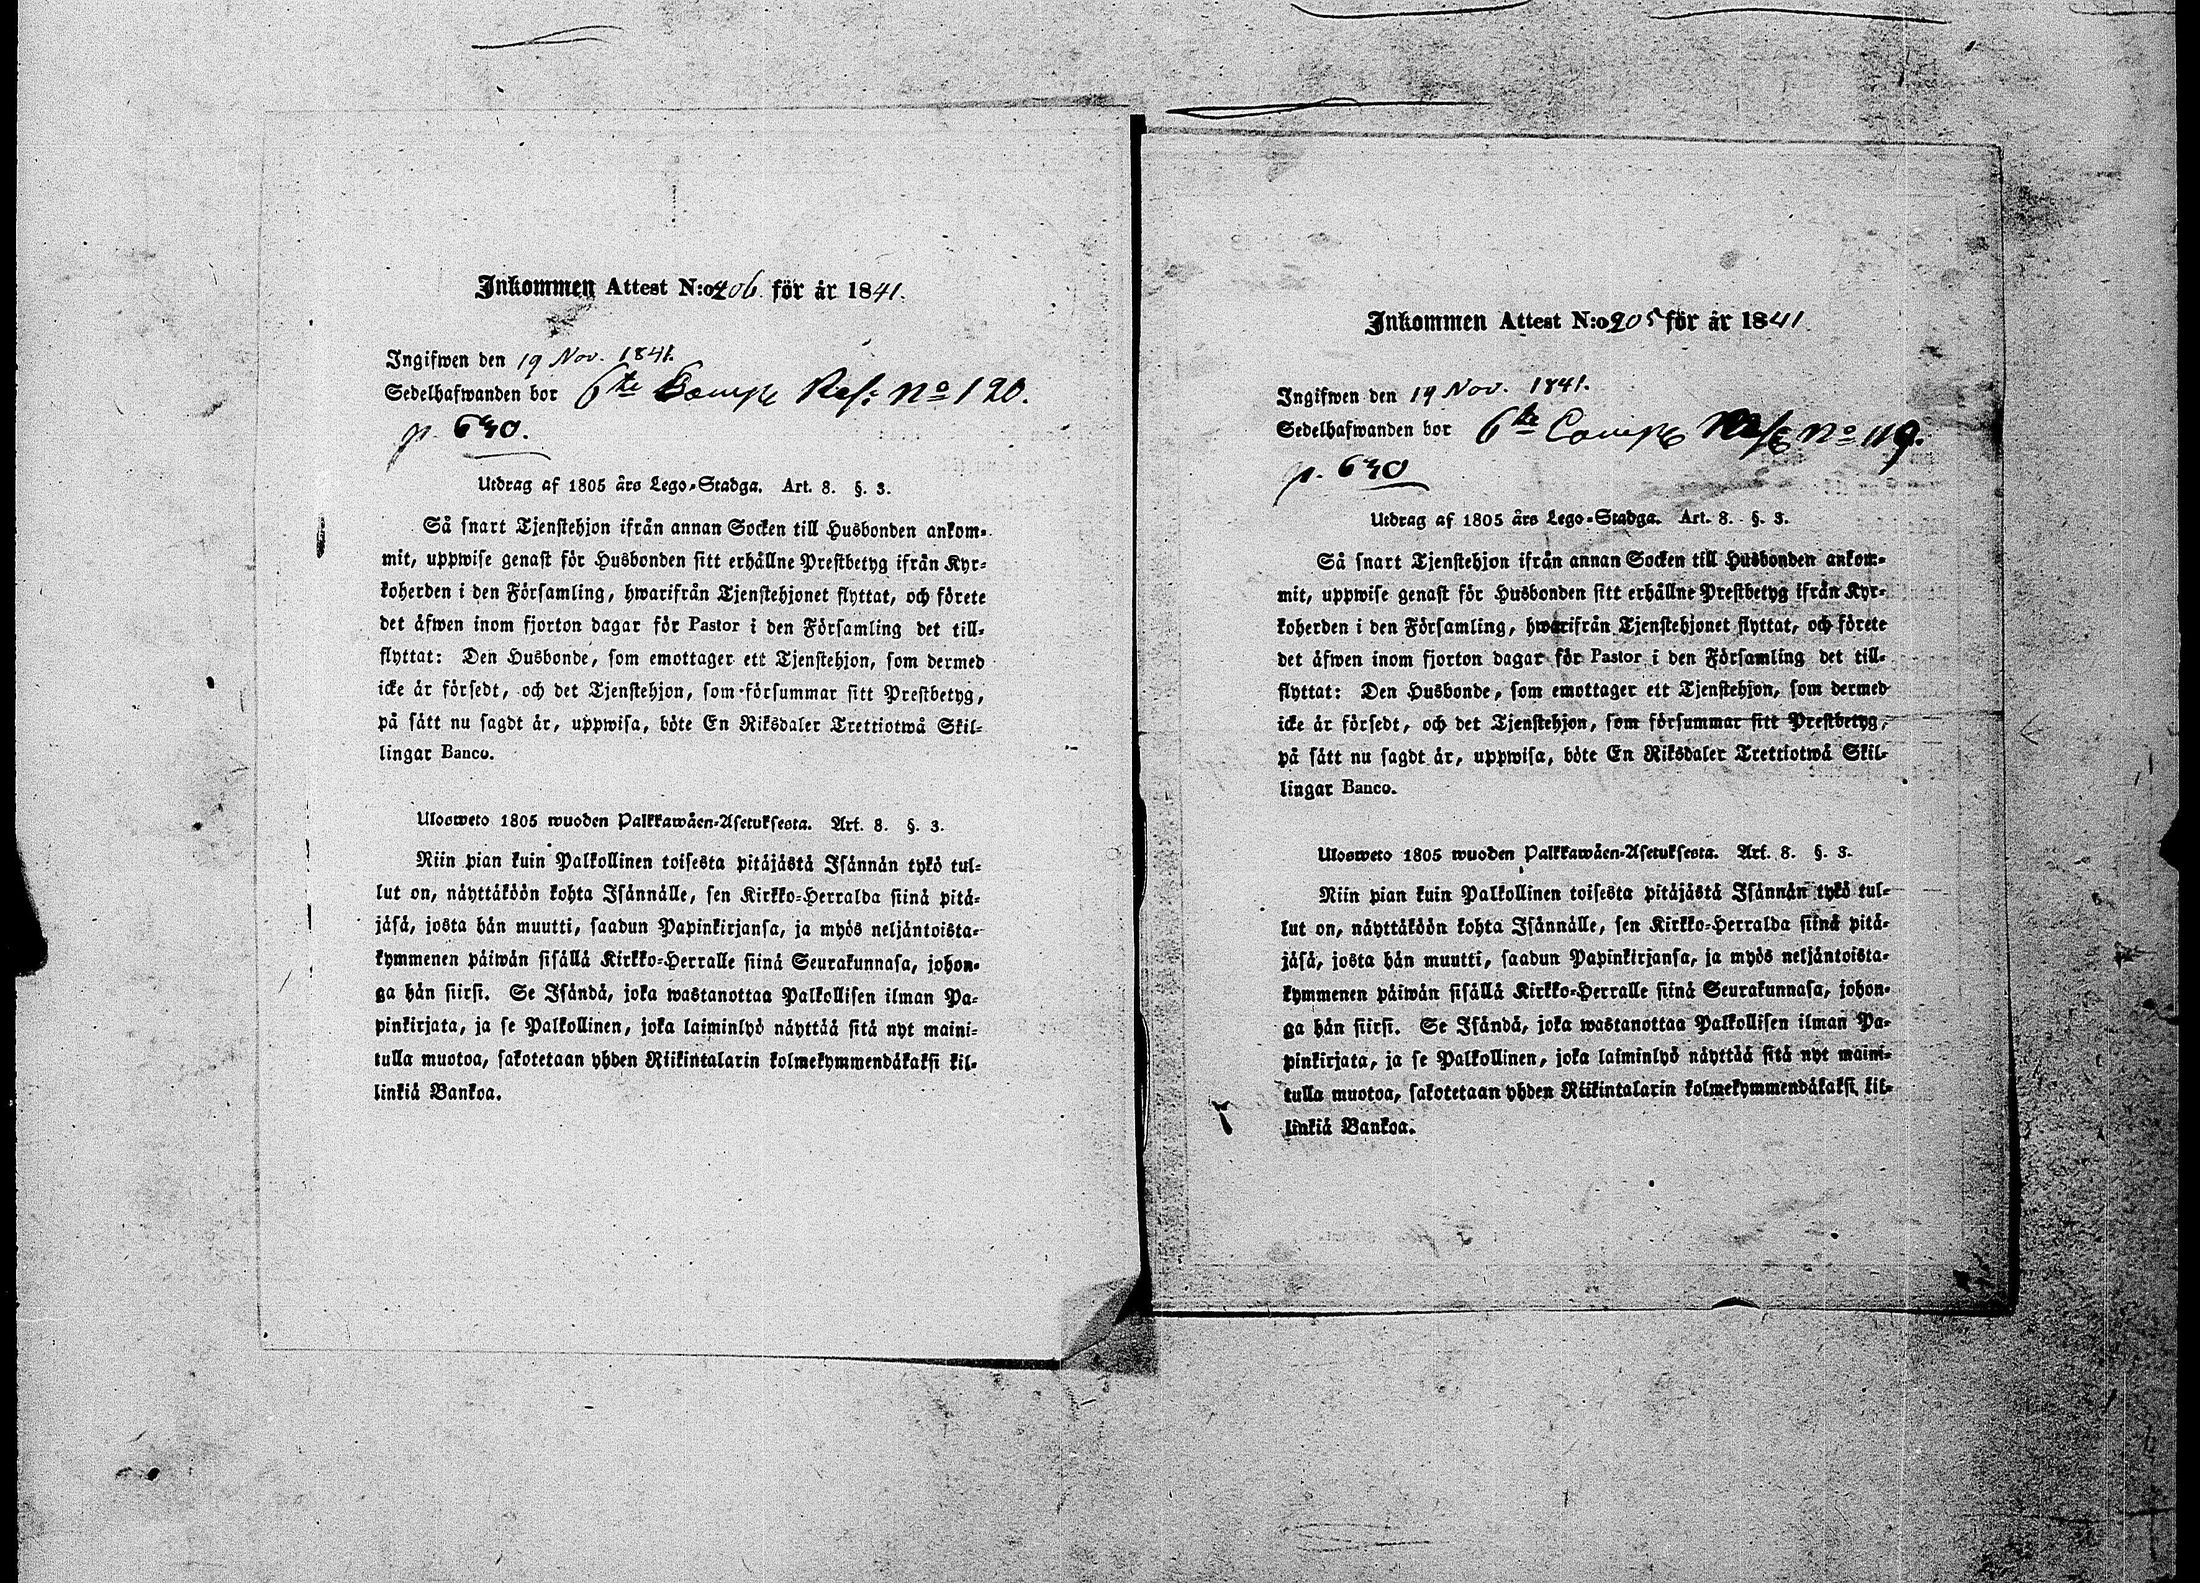 Inkommen Attest N:o 206. för år 1841.
Ingifwen den 19 Nov. 1841.
Sedelhafwanden bor 6te Comp Ref: No 120.
p. 630.
Utdrag af 1805 års Lego-Stadga. Art. 8. §. 3.
Så snart Tjenstehjon ifrån annan Socken till Husbonden ankom-
mit, uppwise genast för Husbonden sitt erhållne Prestbetyg ifrån Kyr-
koherden i den Församling, hwarifrån Tjenstehjonet flyttat, och förete
det äfwen inom fjorton dagar för Pastor i den Församling det till-
flyttat: Den Husbonde, som emottager ett Tjenstehjon, som dermed
icke är försedt, och det Tjenstehjon, som försummar sitt Prestbetyg,
på sätt nu sagdt är, uppwisa, böte En Riksdaler Trettiotwå Skil-
lingar Banco.
Ulosweto 1805 wuoden Palkkawäen-Asetuksesta. Art. 8. §. 3.
Niin pian kuin Palkollinen toisesta pitäjästä Isännän tykö tul-
lut on, näyttäköön kohta Isännälle, sen Kirkko-Herralda siinä pitä-
jäsä, josta hän muutti, saadun Papinkirjansa, ja myös neljäntoista-
kymmenen päiwän sisällä Kirkko-Herralle siinä Seurakunnasa, johon-
ga hän siirsi. Se Isändä, joka wastanottaa Palkollisen ilman Pa-
pinkirjata, ja se Palkollinen, joka laiminlyö näyttää sitä nyt maini-
tulla muotoa, sakotetaan yhden Riikintalarin kolmekymmendäkaksi kil-
linkiä Bankoa.
Inkommen Attest N:o 205 för år 1841
Ingifwen den 19 Nov. 1841.
Sedelhafwanden bor 6te Comp Ref No 119.
p. 630
Utdrag af 1805 års Lego-Stadga. Art. 8. §. 3.
Så snart Tjenstehjon ifrån annan Socken till Husbonden ankom-
mit, uppwise genast för Husbonden sitt erhållne Prestbetyg ifrån Kyr-
koherden i den Församling, hwarifrån Tjenstehjonet flyttat, och förete
det äfwen inom fjorton dagar för Pastor i den Församling det till-
flyttat: Den Husbonde, som emottager ett Tjenstehjon, som dermed
icke är försedt, och det Tjenstehjon, som försummar sitt Prestbetyg,
på sätt nu sagdt är, uppwisa, böte En Riksdaler Trettiotwå Skil-
lingar Banco.
Ulosweto 1805 wuoden Palkkawäen-Asetuksesta. Art. 8. §. 3.
Niin pian kuin Palkollinen toisesta pitäjästä Isännän tykö tul-
lut on, näyttäköön kohta Isännälle, sen Kirkko-Herralda siinä pitä-
jäsä, josta hän muutti, saadun Papinkirjansa, ja myös neljäntoista-
kymmenen päiwän sisällä Kirkko-Herralle siinä Seurakunnasa, johon-
ga hän siirsi. Se Isändä, joka wastanottaa Palkollisen ilman Pa-
pinkirjata, ja se Palkollinen, joka laiminlyö näyttää sitä nyt maini-
tulla muotoa, sakotetaan yhden Riikintalarin kolmekymmendäkaksi kil-
linkiä Bankoa.